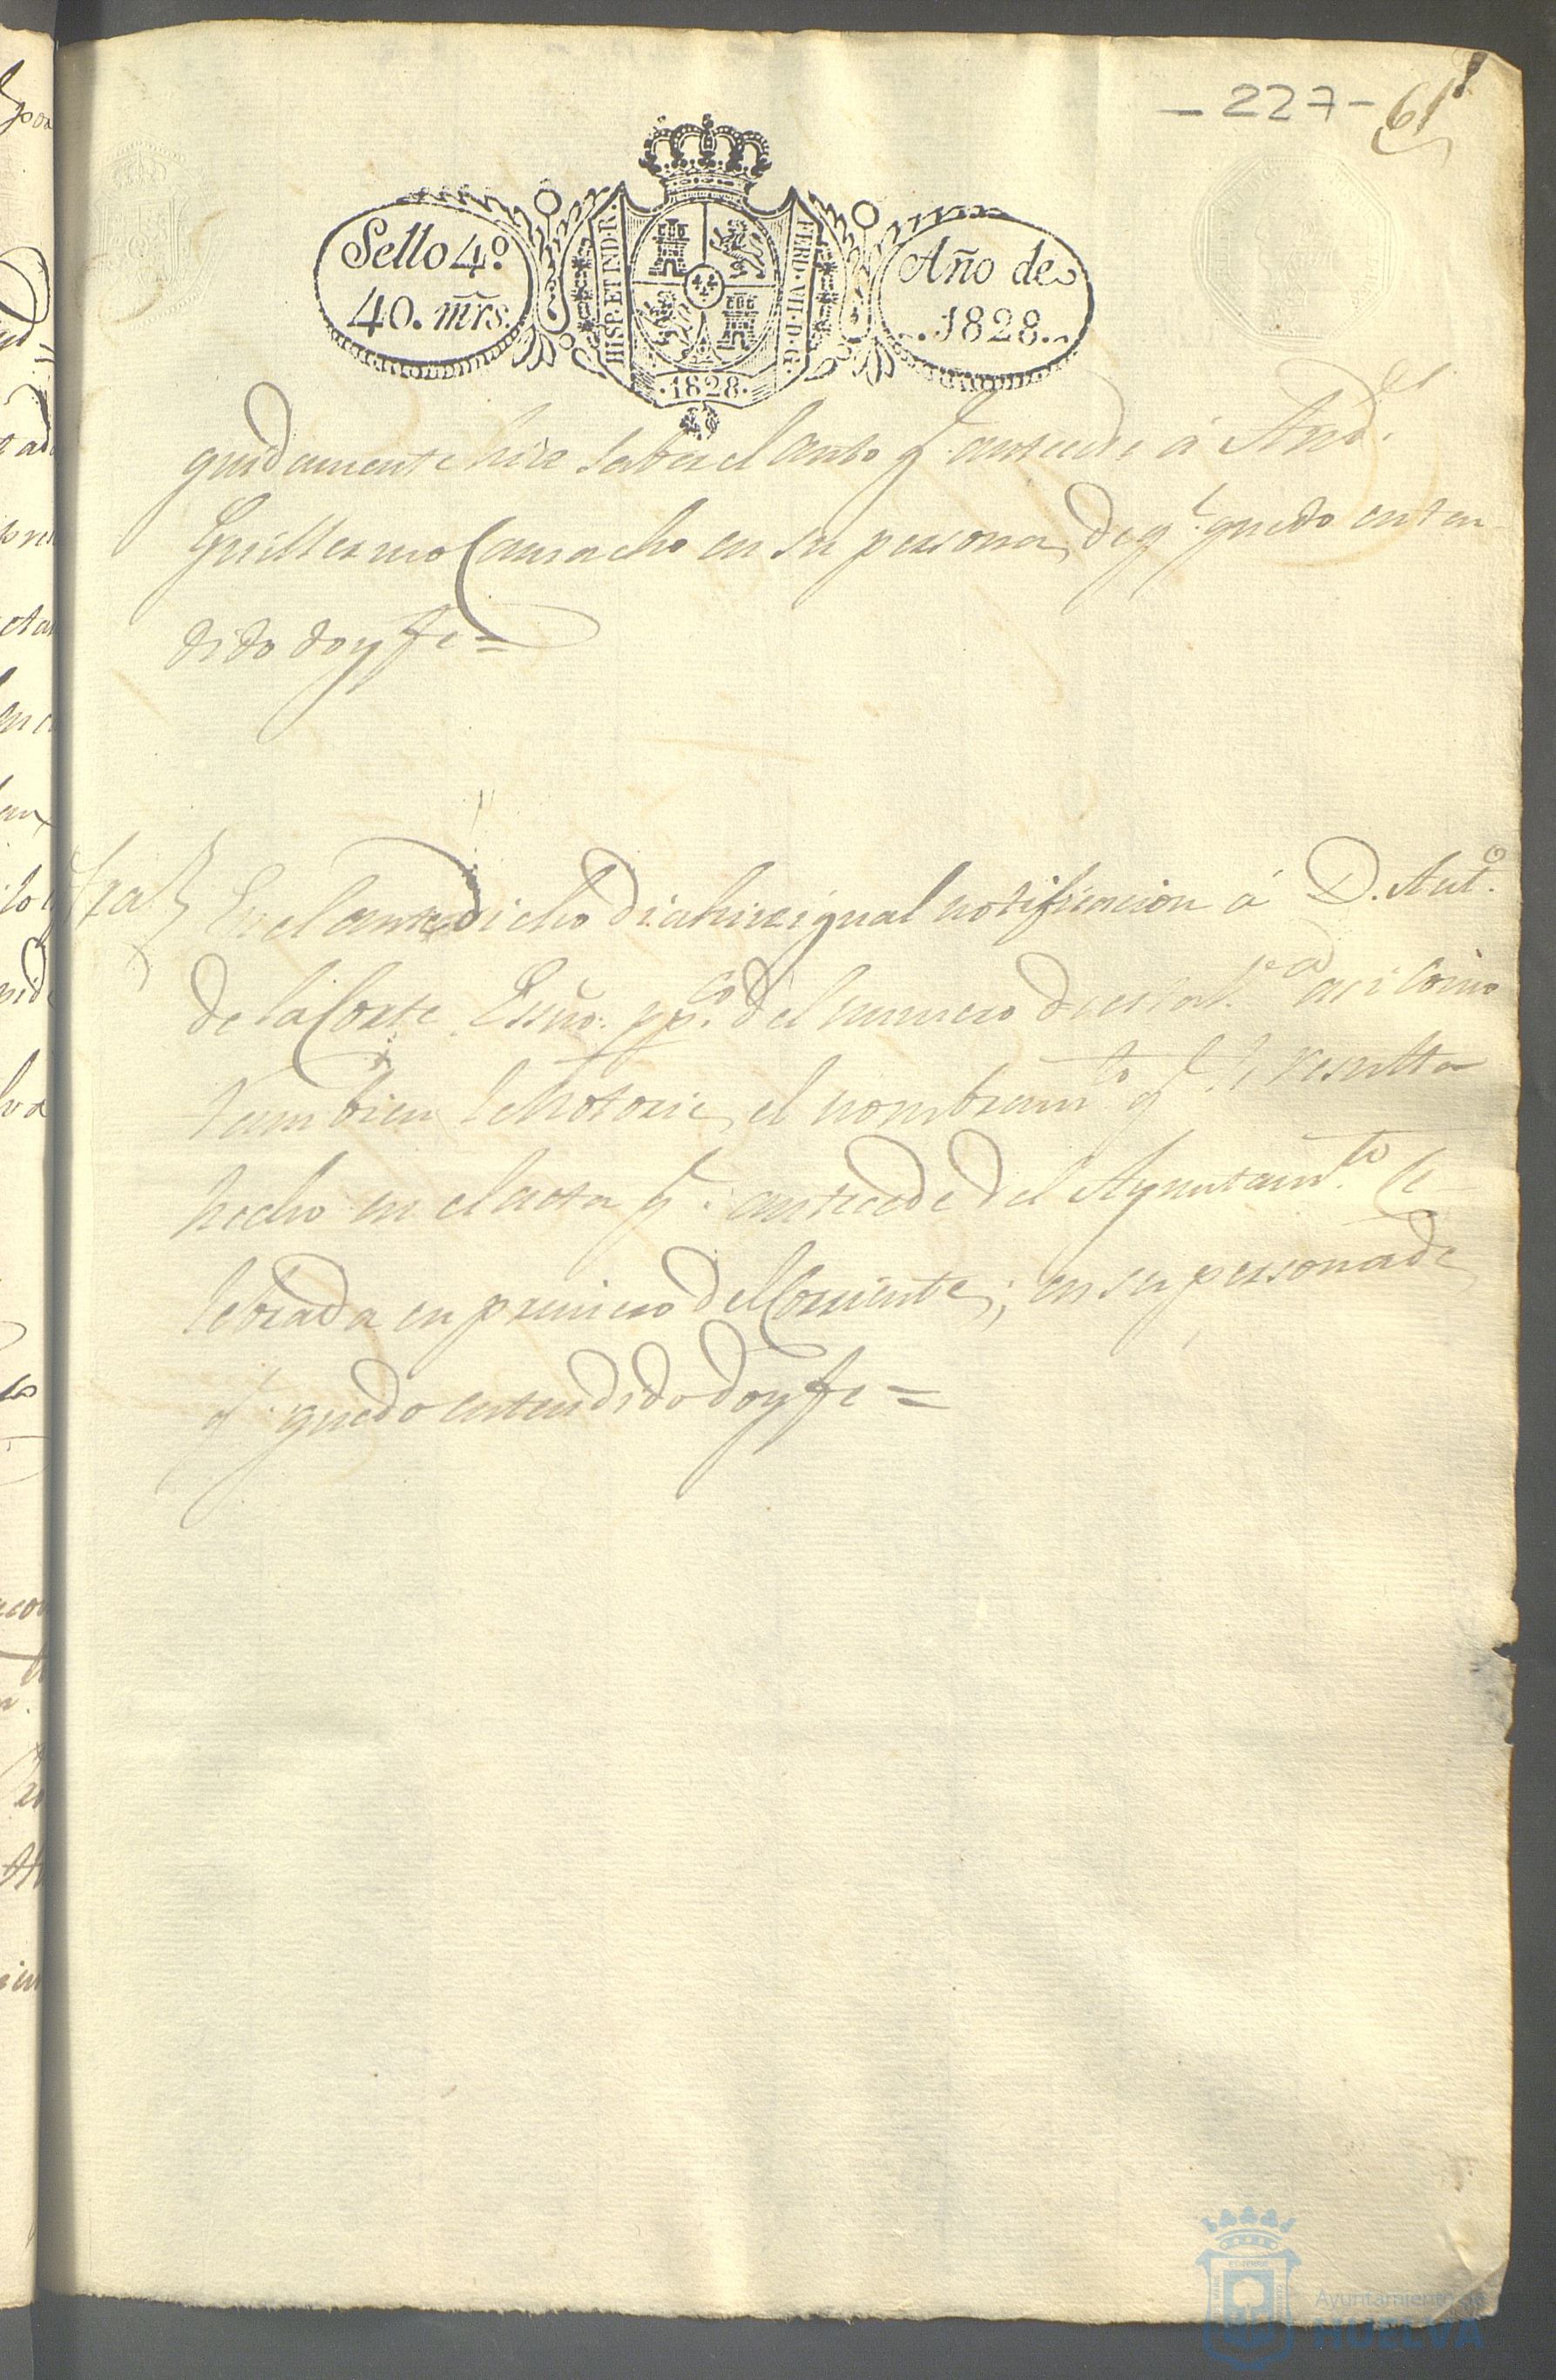 - 227 - 61
Sello 4º.
40. mrs.
HISP. ET IND. R.
FERD. VII. D. G.
.1828.
Año de
1828.
guidamente hice saber el auto q.e antecede á And.es
Guillermo Camacho en su persona, de q.e quedo enten-
dido doy fe =
Otra
En el antedicho dia hice igual notificacion á D. Ant.º
de la Corte Essno. pp.co del numero de esta V.a asi como
tambien le notorie, el nombram.to q.e le resulta
hecho en el acta q.e antecede del Ayuntam.to Ce-
lebrada en primero del Corriente; en su persona de
q.e quedo entendido doy fe =
Ayuntamiento de
HUELVA